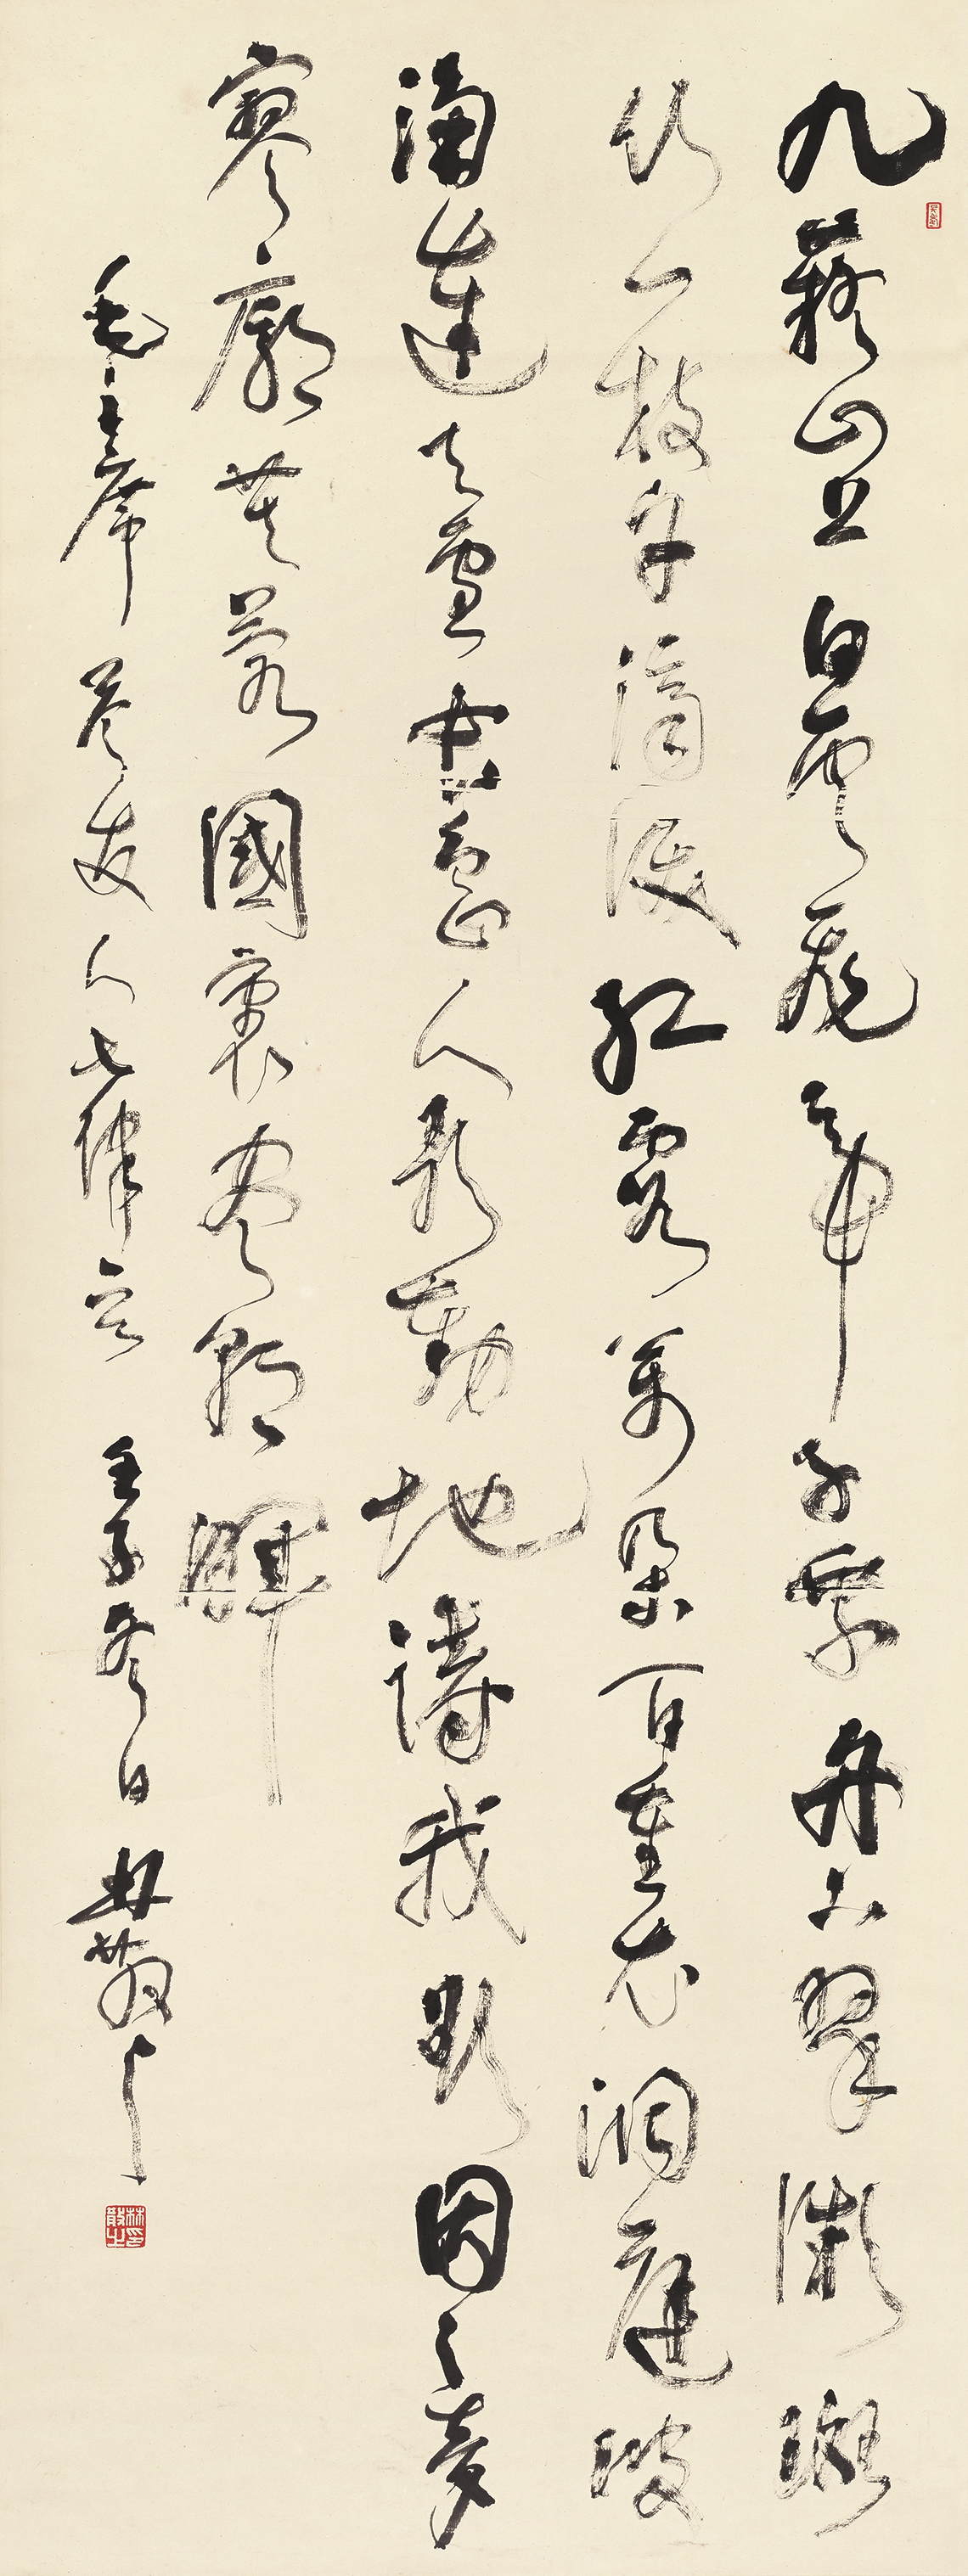 九嶷山上白雲飛帝子乘風下翠微斑
竹一枝千滴淚紅霞萬朵百重衣洞庭波
涌連天雪長島人歌動地詩我欲因之夢
寥廓芙蓉國裏盡朝暉
毛主席答友人七律云 壬子冬日 林散耳
林散之印